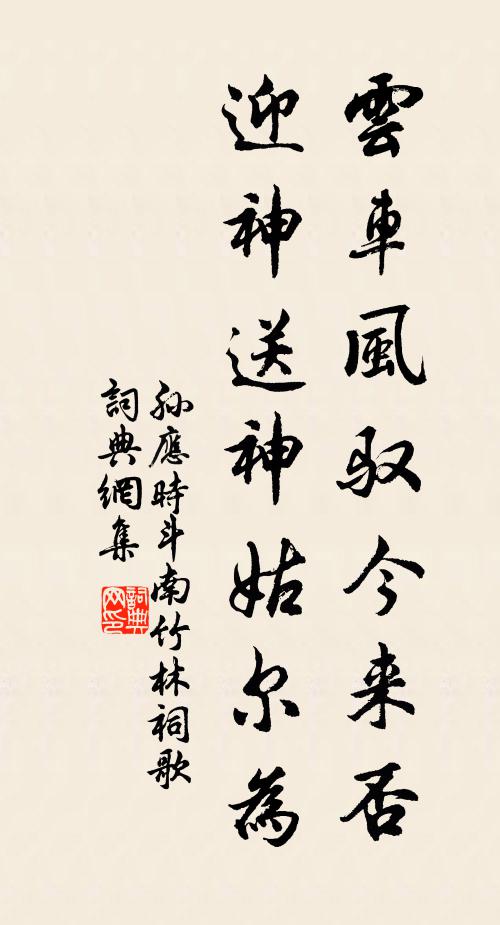 雲車風驭今来否
迎神送神姑尔為
孙應時斗南竹林祠歌
詞典網集
詞典网印